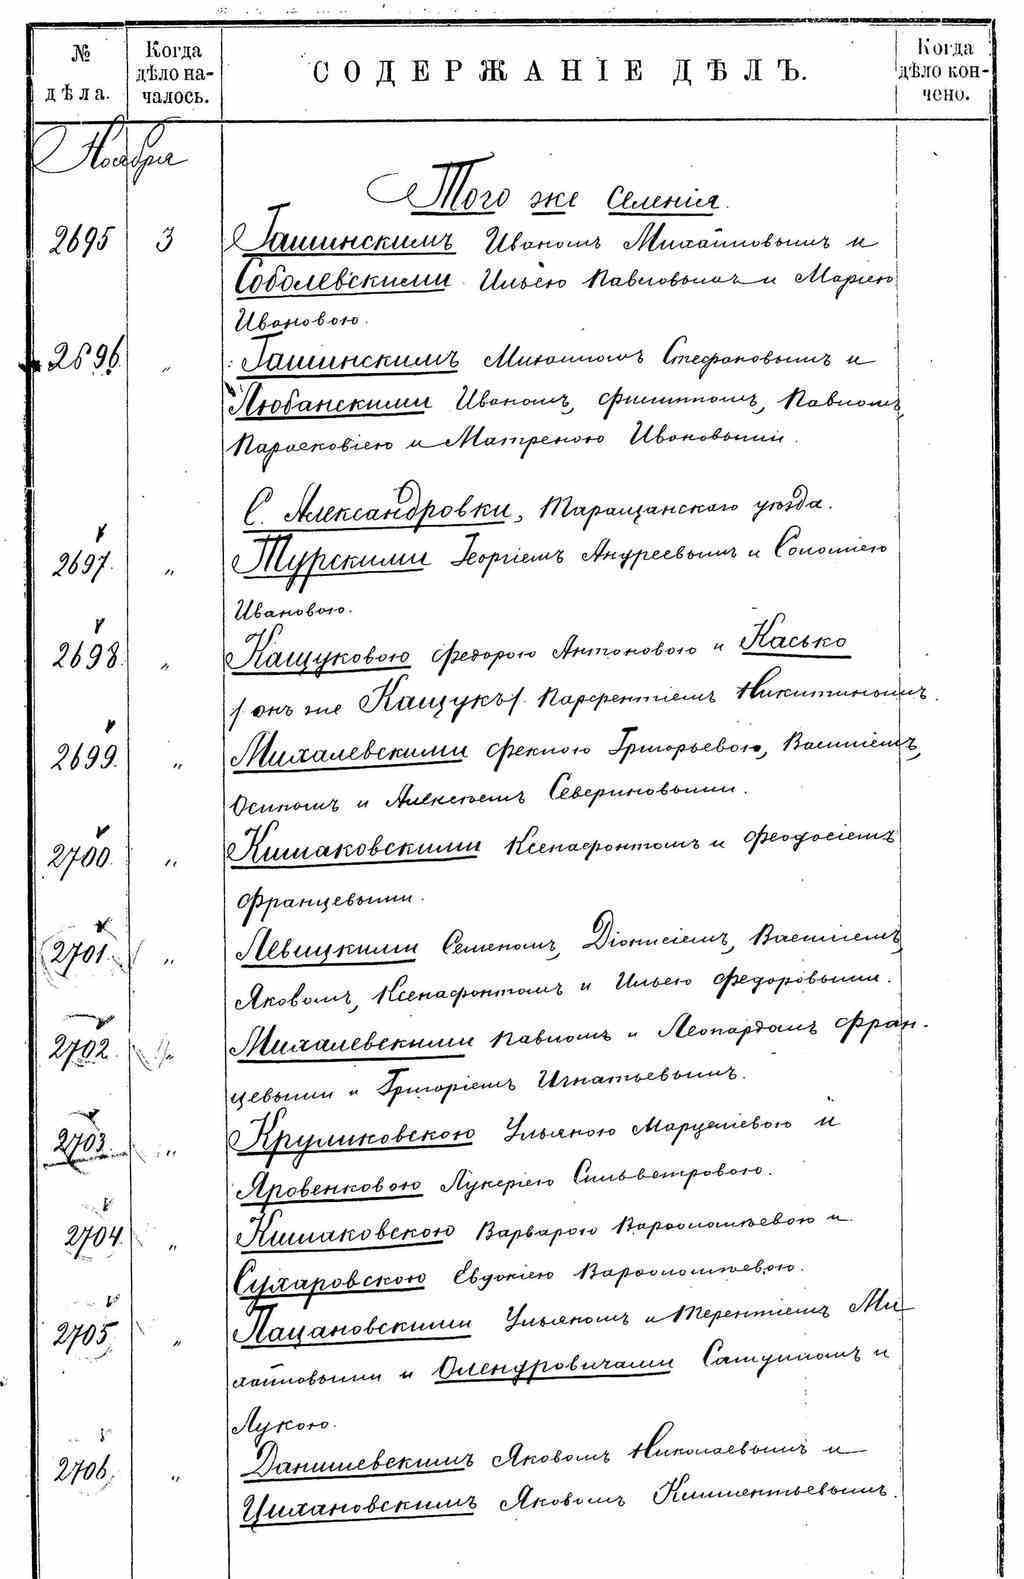 № дѣла.
Когда дѣло началось.
СОДЕРЖАНІЕ ДѢЛЪ.
Когда дѣло кончено.
Ноября
Того же селенія.
2695 3 Гашинскимъ Иваномъ Михайловымъ и
Соболевскими Ильею Павловымъ и Маріею
Ивановою.
2696 " Гашинскимъ Михаиломъ Стефановымъ и
Любанскими Иваномъ, Филиппомъ, Павломъ,
Параскевіею и Матреною Ивановыми.
С. Александровки, Таращанскаго уѣзда.
2697. " Турскими Георгіемъ Андреевымъ и Соломіею
Ивановою.
2698. " Кащуковою Федорою Антоновою и Касько
/онъ же Кащукъ/ Парфентіемъ Никитинымъ.
2699. " Михалевскими Феклою Григорьевою, Василіемъ,
Осипомъ и Алексѣемъ Севериновыми.
2700. " Климаковскими Ксенофонтомъ и Феодосіемъ
Францевыми.
2701. " Левицкими Семеномъ, Діонисіемъ, Василіемъ,
Яковомъ, Ксенофонтомъ и Ильею Федоровыми.
2702. " Михалевскими Павломъ и Леопардомъ Фран-
цевыми и Григоріемъ Игнатьевымъ.
2703. " Круликовскою Ульяною Марцеліевою и
Яровенковою Лукеріею Сильветровою.
2704. " Климаковскою Варварою Варфоломѣевою и
Сухаровскою Евдокіею Варфоломѣевою.
2705. " Лацановскими Ульяномъ и Терентіемъ Ми
хайловыми и Олендровичами Самуиломъ и
Лукою.
2706. " Данишевскимъ Яковомъ Николаевымъ и
Цихановскимъ Яковомъ Климентьевымъ.